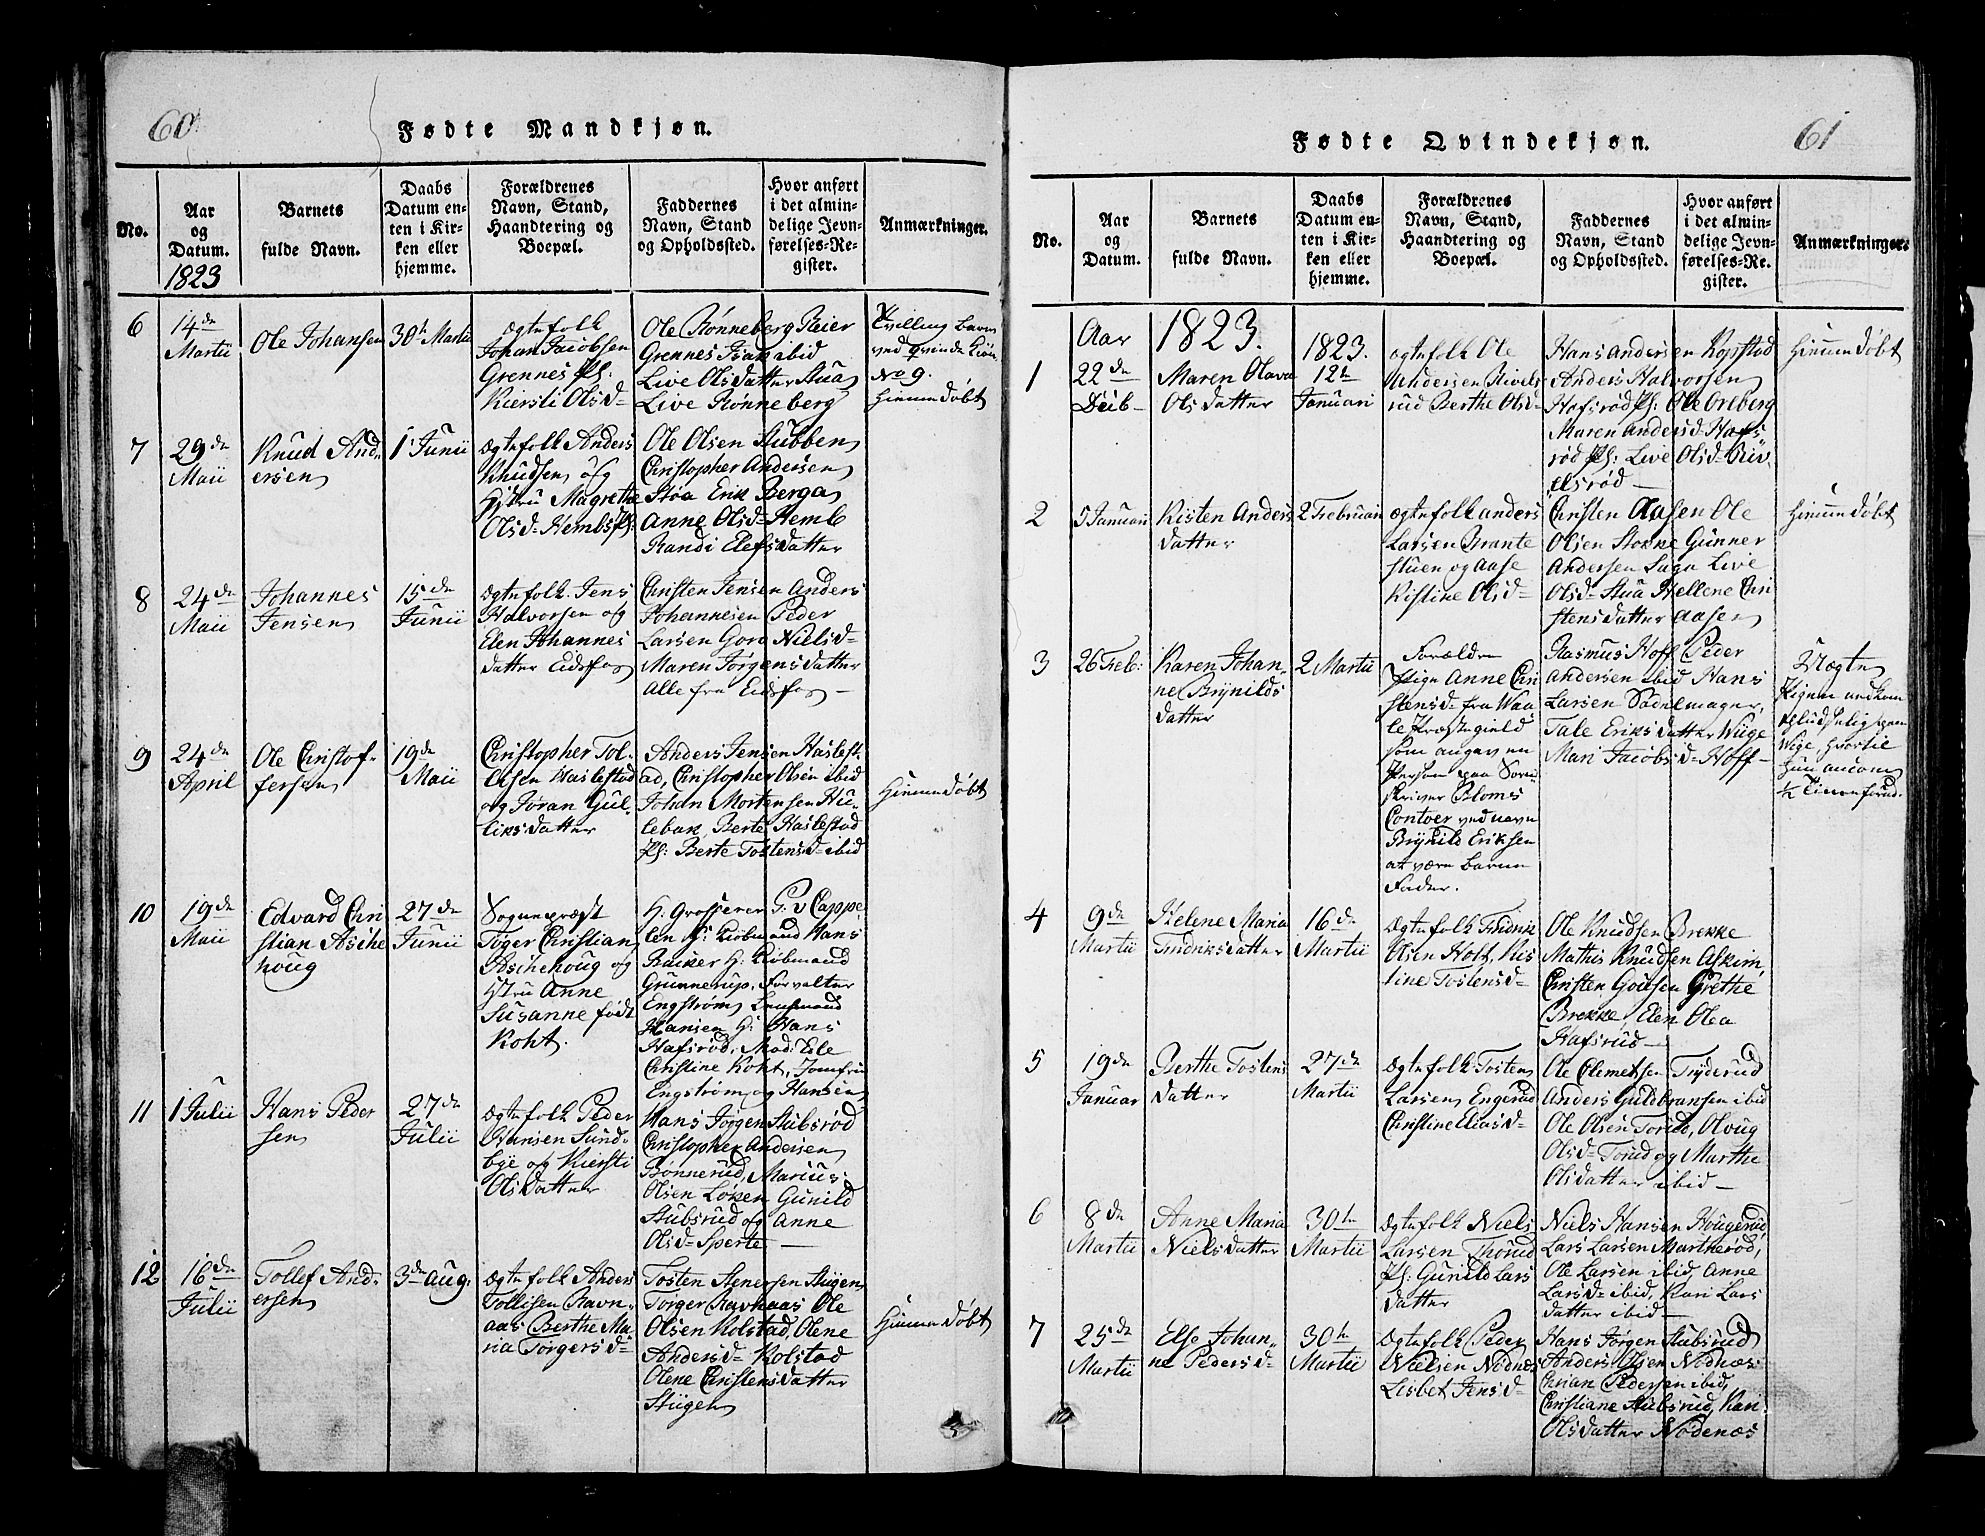 60
Fødte Mandkjøn.
No.
Aar
og
Datum.
1823
Barnets
fulde Navn.
Daabs
Datum en-
ten i Kir-
ken eller
hjemme.
Forældrenes
Navn, Stand,
Haandtering og
Boepæl.
Faddernes
Navn, Stand
og Opholdssted.
Hvor anført
i det almin-
delige Jevn-
førelses-Re-
gister.
Anmærkninger.
6
14de
Martii
Ole Johansen
30te Martii
Ægtefolk
Johan Jacobsen
Grennes Pl:
Kiersti Olsd=
Ole Rønneberg Reier
Grennes Isak ibid
Live Olsdatter Stua
Live Rønneberg
Tvilling barn
ved qvinde Kiøn
No 9.
Hiemme døbt
7
29de
Maii
Knud And-
ersen
1 Junii
Ægtefolk Anders
Knudsen og
Hstru Magrethe
Olsd= Hembs Pl:
Ole Olsen Stubben
Christopher Andersen
Støa Erik Berga
Anne Olsd= Hemb
Randi Elefsdatter
8
24de
Maii
Johannes
Jensen
15de
Junii
Ægtefolk Jens
Halvorsen og
Elen Johannes
datter Eidsfos
Christen Jensen Anders
Johannesen Peder
Larsen Goro Nielsd=
Maren Jørgensdatter
Alle fra Eidsfos —
9
24de
April
Ole Christof-
fersen
19de
Maii
Christopher Tol-
lefsen Haslestad
og Jøran Gul-
liksdatter
Anders Jensen Haslest-
ad, Christopher Olsen ibid
Johan Mortensen Hu-
lebak, Berte Haslestad
Pl: Berte Tostensd= ibid
Hiemme døbt
10
19de
Maii
Edvard Chri
stian Asche
houg
27de
Junii
Sognepræst
Toger Christian
Aschehoug og
Hstru Anne
Susanne født
Koht.
H: Grosserer P. v Cappe-
len H: Kiøbmand Hans
Backer H: Kiøbmand
Grunnerup, Forvalter
Engstrøm Lensmand
Hansen H: Hans
Hafsrød, Mad: Eile
Christine Koht, Jomfru
Engstrøm og Hansen
11
1 Julii
Hans Peder
sen
27de
Julii
Ægtefolk Peder
Hansen Sund-
bye og Kiersti
Olsdatter
Hans Jørgen Stubsrød
Christopher Andersen
Bønnerud, Marius
Olsen Løken Gunild
Stubsrud og Anne
Olsd= Sperte —
12
16de
Julii
Tollef And-
ersen
3de Aug:
Ægtefolk Anders
Tollisen Ravn-
aas Berthe Ma-
ria Torgersd=
Tosten Agnersen Stügen
Torger Ravnaas Ole
Olsen Kolstad, Olene
Andersd= Kolstad
Olene Christensdatter
Stügen
Hiemme døbt
61
Fødte Qvindekjøn.
No.
Aar
og
Datum.
Barnets
fulde Navn.
Daabs
Datum en-
ten i Kir-
ken eller
hjemme.
Forældrenes
Navn, Stand,
Haandtering og
Boepæl.
Faddernes
Navn, Stand
og Opholdssted.
Hvor anført
i det almin-
delige Jevn-
førelses-Re-
gister.
Anmærkninger.
Aar
1823.
1823.
1
22de
Decb-
Maren Olava
Olsdatter
12te
Januari
Ægtefolk Ole
Andersen Rivels
rud Berthe Olsd-
Hans Andersen Kopstad
Anders Halvorsen
Hafsrød Pl: Ole Oreberg
Maren Andersd Hafs
rød Pl: Live Olsd= Riv-
elsrød —
Hiemmedøbt
2
5 Januari
Kisten Anders
datter
2 Februari
Ægtefolk Anders
Larsen Brante
stuen og Aase
Kistine Olsd=
Christen Aasen Ole
Olsen Stokke Gunner
Andersen Saga Live
Olsd= Stua Hellene Chri
stensdatter Aasen
Hiemmedøbt
3
26 Feb:
Karen Johan-
ne Brynilds
datter
2 Martii
Forældre
Pige Anne Chri
stensd= fra Waa
le Præstegield
som angav en
Person paa Soren
skriver Bloms
Contoer ved navn
Brynild Eriksen
at være barne
Fader.
Rasmus Hoff Peder
Andersen ibid Hans
Larsen Sadelmager,
Tale Eriksdatter Wüge
Mari Jacobsd= Hoff-
Uægte
Wige, hvortil
hun ankom
½ Time forud.
4
9de
Martii
Helene Maria
Fredriksdatter
16de
Martii
Ægtefolk Fredrik
Olsen Holt, Kis
tine Tostensd=
Ole Knudsen Brekke
Mathis Knudsen Askim,
Christen Goulsen Grethe
Brekke, Elen Olea
Hafsrud —
5
19de
Januar
Berthe Tostens
datter
27de
Martii
Ægtefolk Tosten
Larsen Engerud
Christine Eliasd=
Ole Clemetsen Tryderud
Anders Guldbransen ibid
Ole Olsen Torud, Oloug
Olsd= Torud og Marthe
Olsdatter ibid —
6
8de
Martii
Anne Maria
Nielsdatter
30te
Martii
Ægtefolk Niels
Larsen Thorud
Pl: Gunild Lars
datter
Niels Hansen Hougerud
Lars Larsen Martherød,
Ole Larsen ibid, Anne
Larsd= ibid, Kari Lars
datter ibid —
7
25de
Martii
Else Johan-
ne Pedersd=
30te
Martii
Ægtefolk Peder
Nielsen Nodnes
Lisbet Jensd=
Hans Jørgen Stubsrud
Anders Olsen Nodnæs
Chrian Pedersen ibid,
Christiane Stubsrud, Kari
Olsdatter Nodenæs